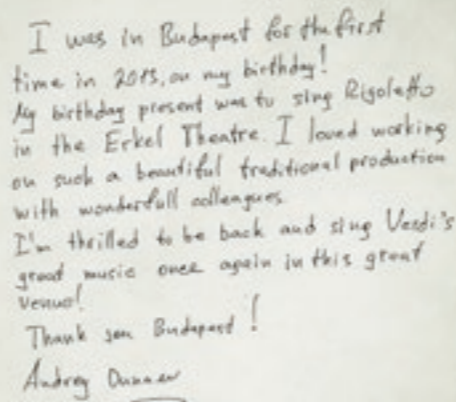 I was in Budapest for the first
time in 2013, on my birthday!
My birthday present was to sing Rigoletto
in the Erkel Theatre. I loved working
on such a beautiful traditional production
with wonderfull colleagues.
I'm thrilled to be back and sing Verdi's
great music once again in this great
venue!
Thank you Budapest!
Andrey